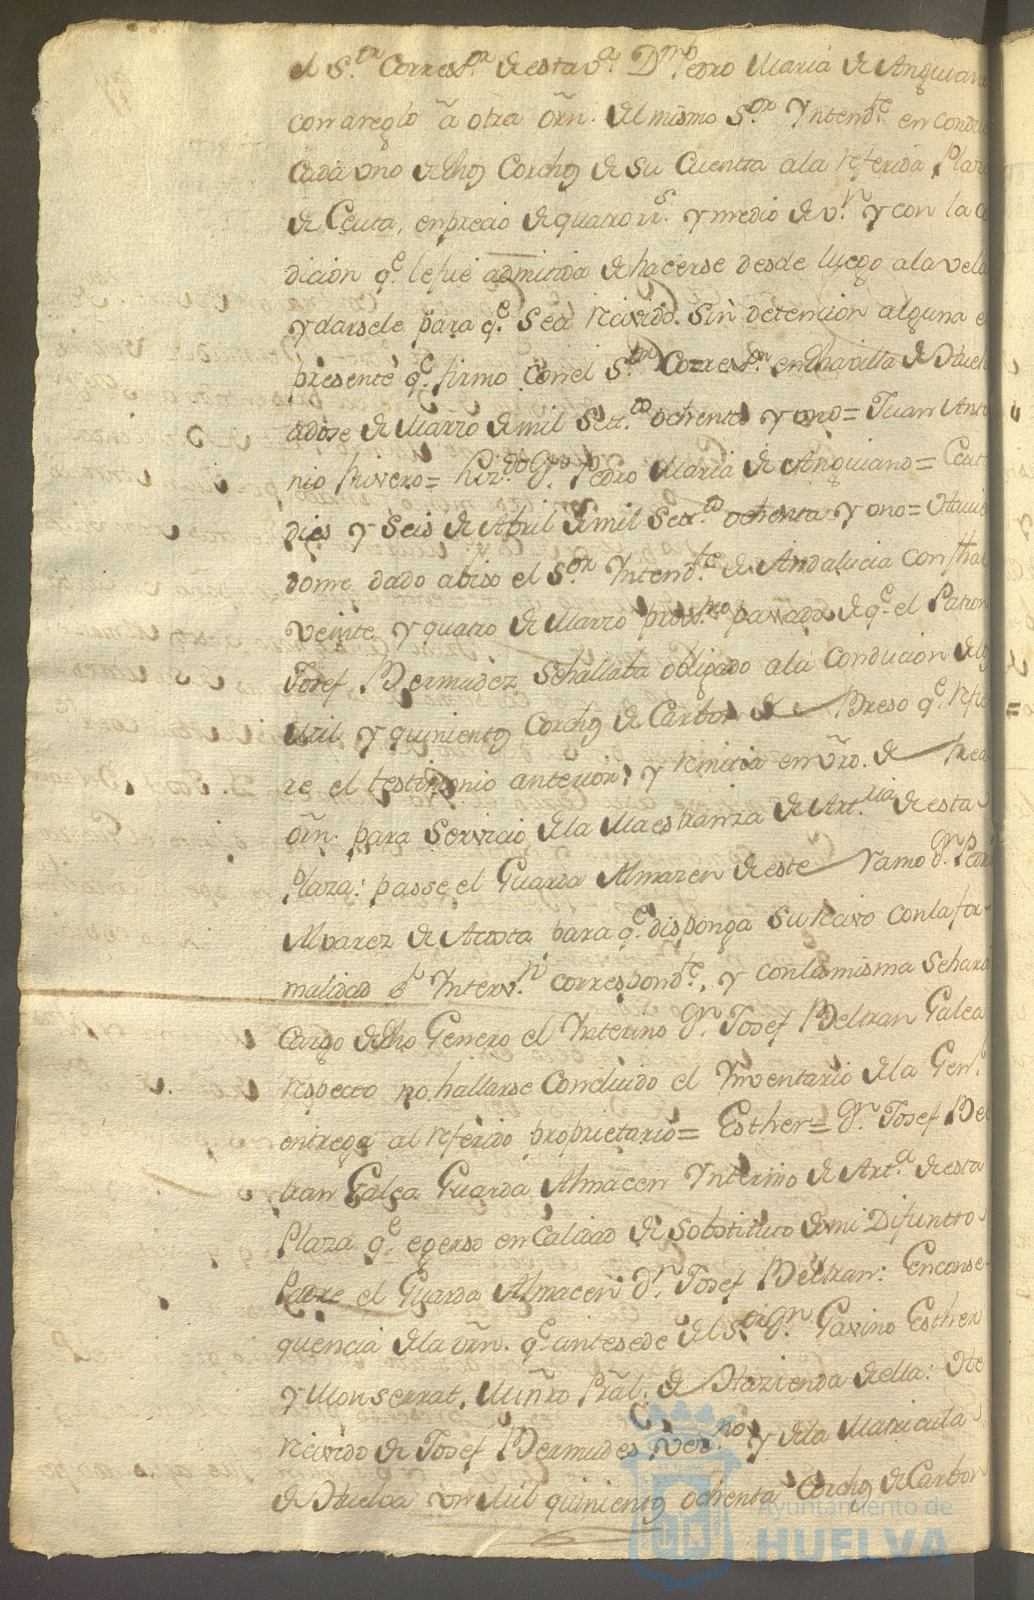 el S.or Corres.or de esta v.a D.n Pedro Maria de Anguiano
con areglo â otra orn. del mismo S.or Yntend.te en condu
cada uno de dhos Corchos de su Cuenta a la referida Plaz
de Ceuta, en precio de quatro rr.s y medio de v.n y con la co
dicion q.e le fue admitida de hacerse desde luego a la vela
y darsele para q.e sea recivido sin detencion alguna e
presente q.e firmo con el S.or Corres.or en dha villa de Huel
a dose de Marzo de mil Set.tos ochenta y uno = Juan Anto
nio Rivero = D.n Pedro Maria de Anguiano = Ceuta
dies y Seis de Abril de mil Set.tos ochenta y uno = Havien
dome dado abiso el S.or Yntend.te de Andalucia con fha
veinte y quatro de Marzo prox.mo pasado de q.e el Patron
Josef Bermudez se hallaba obligado a la Conducion de los
Mil y quinientos Corchos de Carbon de Breso q.e refie
re el testimonio anterior, y remitia en vrõ. de Real
orn. para Servicio de la Maestranza de Art.ria de esta
Plaza: passe el Guarda Almazen de este ramo D.n Pedro
Alvarez de Acosta para q.e disponga su recivo con la for-
malidad é Yterv.n correspond.te, y con la misma se hara
Cargo de dho Genero el Ynterino D.n Josef Beltran Galea
respecto no hallarse Concluido el Ynventario de la Gen.l
entrega al referido proprietario = Esther = D.n Josef Bel
tran Galea Guarda Almacen Ynterino de Art.a de esta
Plaza q.e egerso en Calidad de Sobstituto de mi Difunto
Padre el Guarda Almacen D.n Josef Beltran: En conse-
quencia de la orn. q.e antesede del S.or D.n Gavino Esther
y Monserrat, Miñro Prãl. de Hazienda de ella: He
recivido de Josef Bermudes, vez.no y de la Matricula
de Huelva un Mil quinientos ochenta Corchos de Carbon
Ayuntamiento de
HUELVA